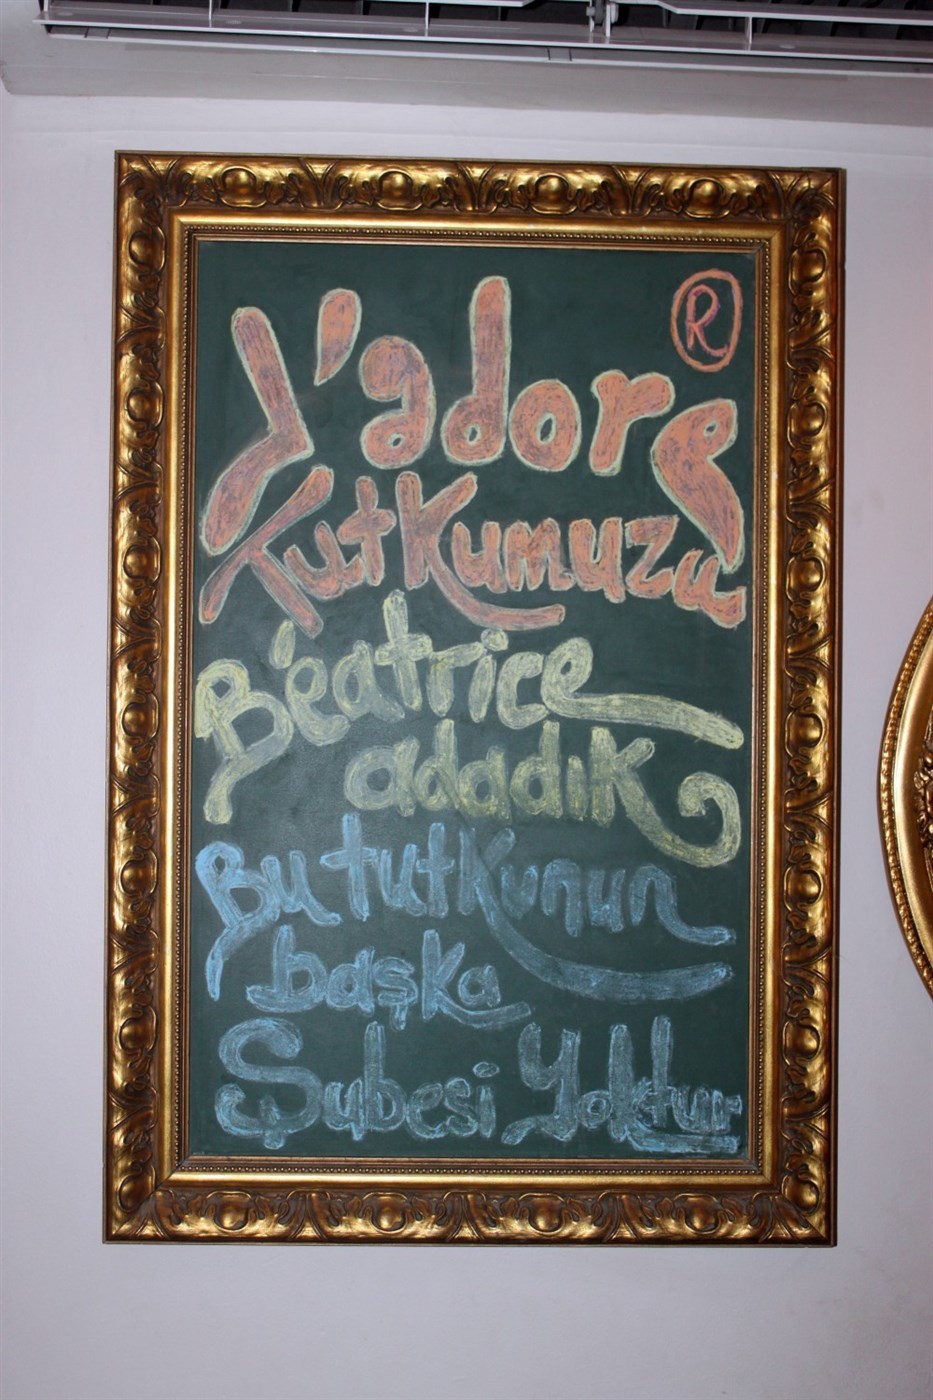 J'adore ®
Tutkumuzu
Béatrice
adadık
Bu tutkunun
başka
Şubesi Yoktur